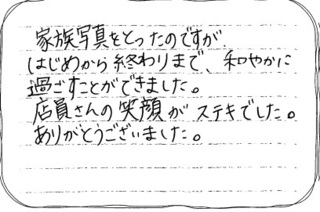 家族写真をとったのですが
はじめから終わりまで、和やかに
過ごすことができました。
店員さんの笑顔がステキでした。
ありがとうございました。